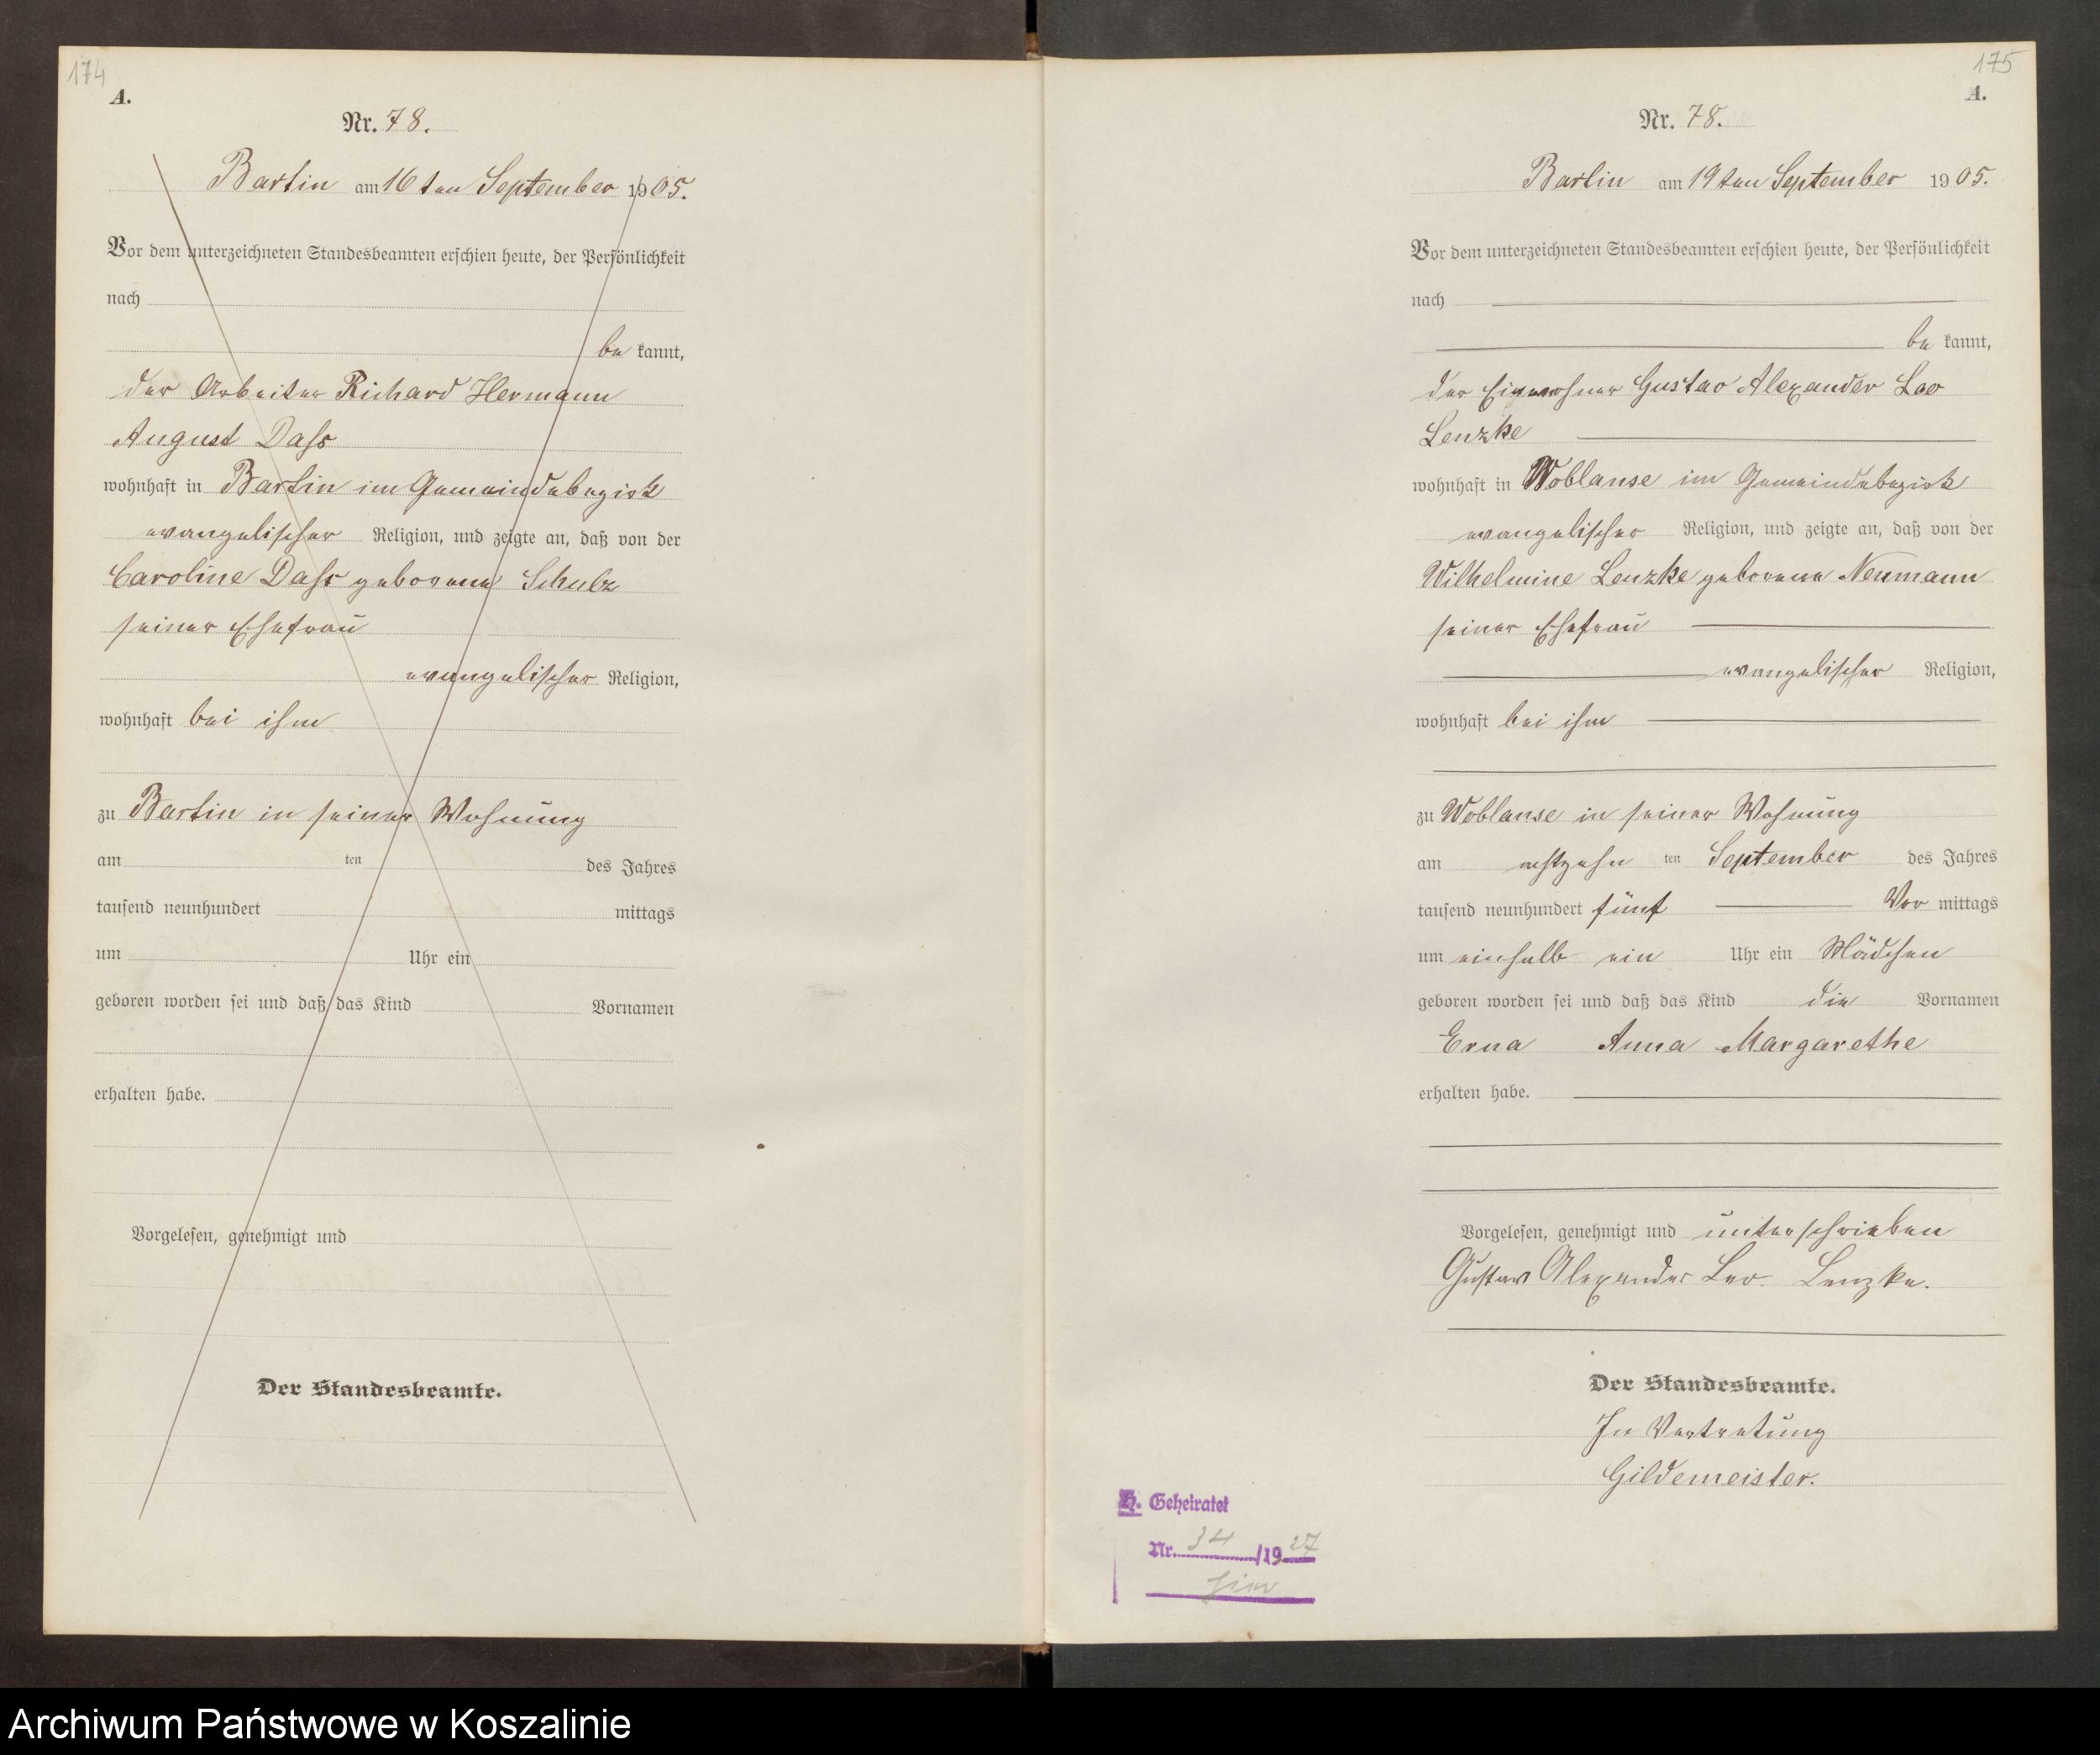 174
A.
Nr. 78.
Bartin am 16ten September 1905.
Vor dem unterzeichneten Standesbeamten erschien heute, der Persönlichkeit
nach
be kannt,
der Arbeiter Richard Hermann
August Dass
wohnhaft in Bartin im Gemeindebezirk
evangelischer Religion, und zeigte an, daß von der
Caroline Dass geborene Schulz
seiner Ehefrau
evangelischer Religion,
wohnhaft bei ihm
zu Bartin in seiner Wohnung
am ten des Jahres
tausend neunhundert mittags
um Uhr ein
geboren worden sei und daß das Kind Vornamen
erhalten habe.
Vorgelesen, genehmigt und
Der Standesbeamte.
175
A.
Nr. 78.
Bartin am 19ten September 1905.
Vor dem unterzeichneten Standesbeamten erschien heute, der Persönlichkeit
nach
be kannt,
der Eigenwohner Gustav Alexander Leo
Lenzke
wohnhaft in Woblanse im Gemeindebezirk
evangelischer Religion, und zeigte an, daß von der
Wilhelmine Lenzke geborene Neumann
seiner Ehefrau
evangelischer Religion,
wohnhaft bei ihm
zu Woblanse in seiner Wohnung
am achtzehn ten September des Jahres
tausend neunhundert fünf Vor mittags
um einhalb ein Uhr ein Mädchen
geboren worden sei und daß das Kind die Vornamen
Erna Anna Margarethe
erhalten habe.
Vorgelesen, genehmigt und unterschrieben
Gustav Alexander Leo Lenzke.
Der Standesbeamte.
In Vertretung
Gildemeister.
H. Geheiratet
Nr. 34 /1927
hier
Archiwum Państwowe w Koszalinie